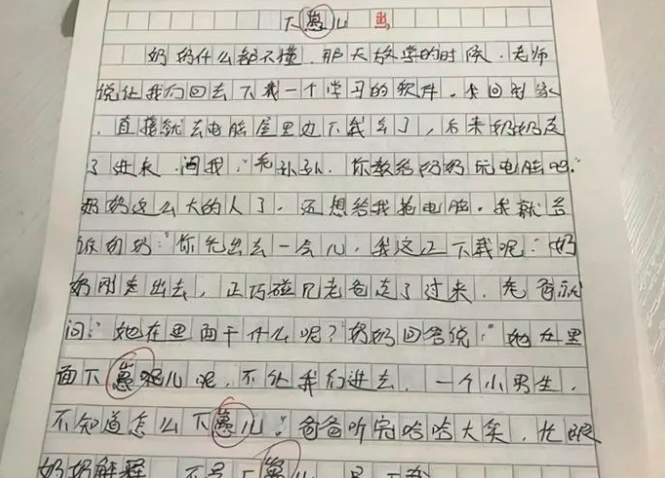 下崽儿
奶奶什么都不懂,那天放学的时候,老师
说让我们回去下载一个学习的软件,我回到家
,直接就去电脑屋里边下载去了,后来奶奶走
了进来,问我:"毛孙孙,你教给奶奶玩电脑吧."
奶奶这么大的人了,还想给我抢电脑,我就告
诉奶奶:"你先出去一会儿,我这正下载呢":奶
奶刚走出去,正巧碰见老爸走了过来,老爸就
问:"她在里面干什么呢?奶奶回答说:"她在里
面下崽儿呢,不让我们进去,一个小男生,
不知道怎么下崽儿":爸爸听完哈哈大笑,忙跟
奶奶解释 不是下崽儿,是下载